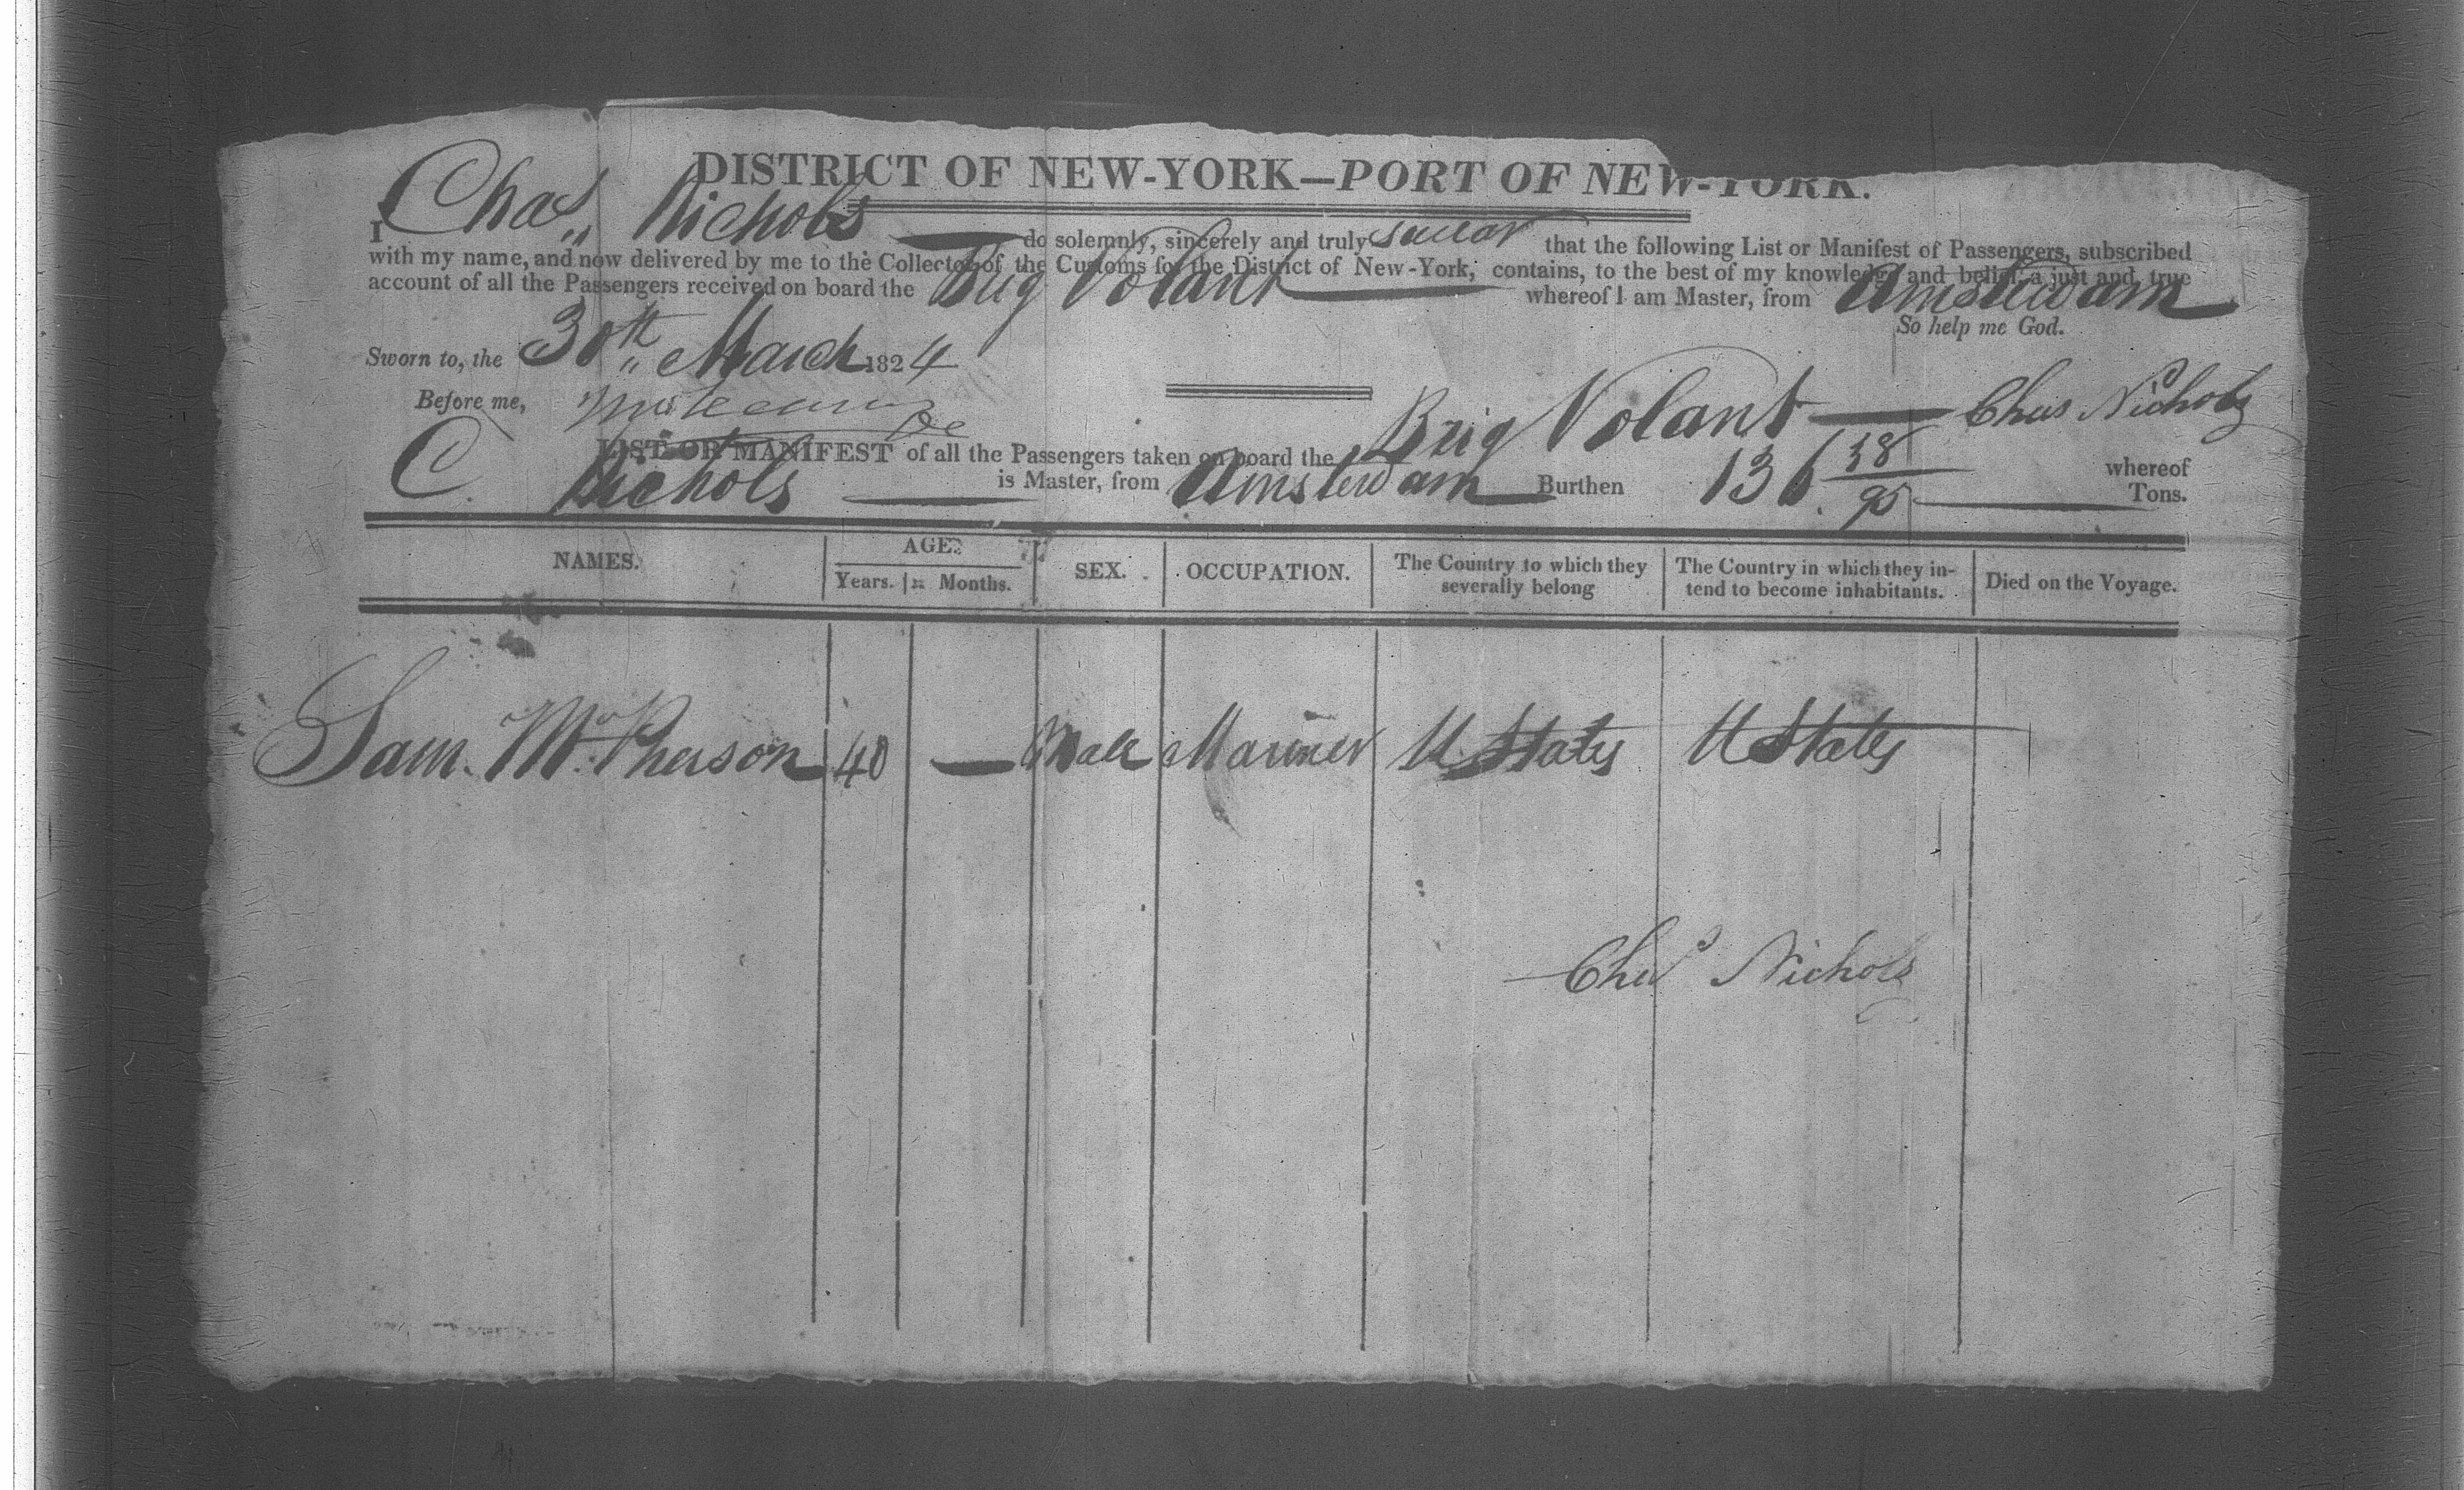 DISTRICT OF NEW-YORK—PORT OF NEW-YORK.
I Chas,, Nichols — do solemnly, sincerely and truly swear that the following List or Manifest of Passengers, subscribed
with my name, and now delivered by me to the Collector of the Customs for the District of New-York, contains, to the best of my knowledge and belief, a just and true
account of all the Passengers received on board the Brig Volant — whereof I am Master, from Amsterdam
So help me God.
Sworn to, the 30th,, March 1824
Before me,
Chas Nichols
LIST OR MANIFEST of all the Passengers taken on board the Brig Volant — whereof
C. Nichols — is Master, from Amsterdam — Burthen 136. 38/95 — Tons.
NAMES. AGE. SEX. OCCUPATION. The Country to which they severally belong The Country in which they intend to become inhabitants. Died on the Voyage.
Years. Months.
Sam. Mc.Pherson 40 — Male Mariner U States U States
Chas Nichols